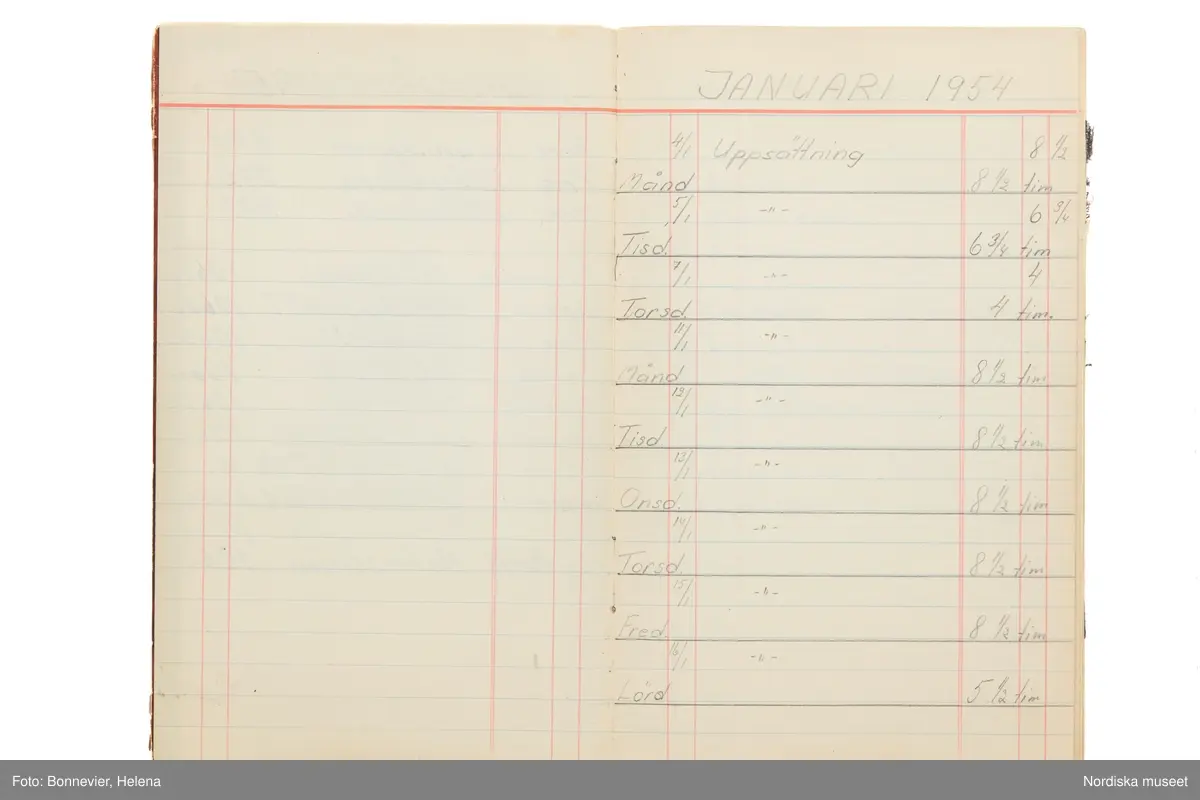 JANUARI 1954
4/1 Uppsättning 8 1/2
Månd 8 1/2 tim
5/1 -"- 6 3/4
Tisd. 6 3/4 tim
7/1 -"- 4
Torsd. 4 tim.
11/1 -"-
Månd 8 1/2 tim
12/1 -"-
Tisd 8 1/2 tim
13/1 -"-
Onsd. 8 1/2 tim
14/1 -"-
Torsd. 8 1/2 tim
15/1 -"-
Fred. 8 1/2 tim
16/1 -"-
Lörd 5 1/2 tim
Foto: Bonnevier, Helena
Nordiska museet